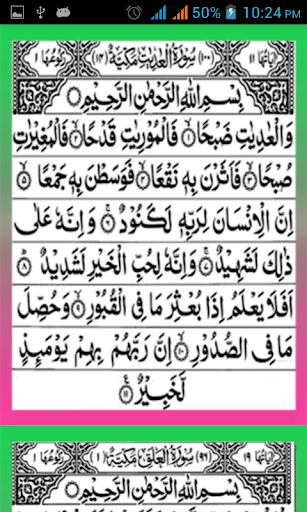 50% 10:24 PM
اٰیَاتُهَا ۱۱ (۱۰۰) سُوْرَةُ الْعٰدِیٰتِ مَكِّیَّةٌ (۱۴) رُكُوْعُهَا ۱
بِسْمِ اللّٰهِ الرَّحْمٰنِ الرَّحِیْمِ
وَالْعٰدِیٰتِ ضَبْحًا ۙ۱ فَالْمُوْرِیٰتِ قَدْحًا ۙ۲ فَالْمُغِیْرٰتِ
صُبْحًا ۙ۳ فَاَثَرْنَ بِهٖ نَقْعًا ۙ۴ فَوَسَطْنَ بِهٖ جَمْعًا ۙ۵
اِنَّ الْاِنْسَانَ لِرَبِّهٖ لَكَنُوْدٌ ۚ۶ وَاِنَّهٗ عَلٰی
ذٰلِكَ لَشَهِیْدٌ ۚ۷ وَاِنَّهٗ لِحُبِّ الْخَیْرِ لَشَدِیْدٌ ؕ۸
اَفَلَا یَعْلَمُ اِذَا بُعْثِرَ مَا فِی الْقُبُوْرِ ۙ۹ وَحُصِّلَ
مَا فِی الصُّدُوْرِ ۙ۱۰ اِنَّ رَبَّهُمْ بِهِمْ یَوْمَىِٕذٍ
لَّخَبِیْرٌ ۠۱۱
اٰیَاتُهَا ۱۹ (۹۶) سُوْرَةُ الْعَلَقِ مَكِّیَّةٌ (۱) رُكُوْعُهَا ۱
بِسْمِ اللّٰهِ الرَّحْمٰنِ الرَّحِیْمِ